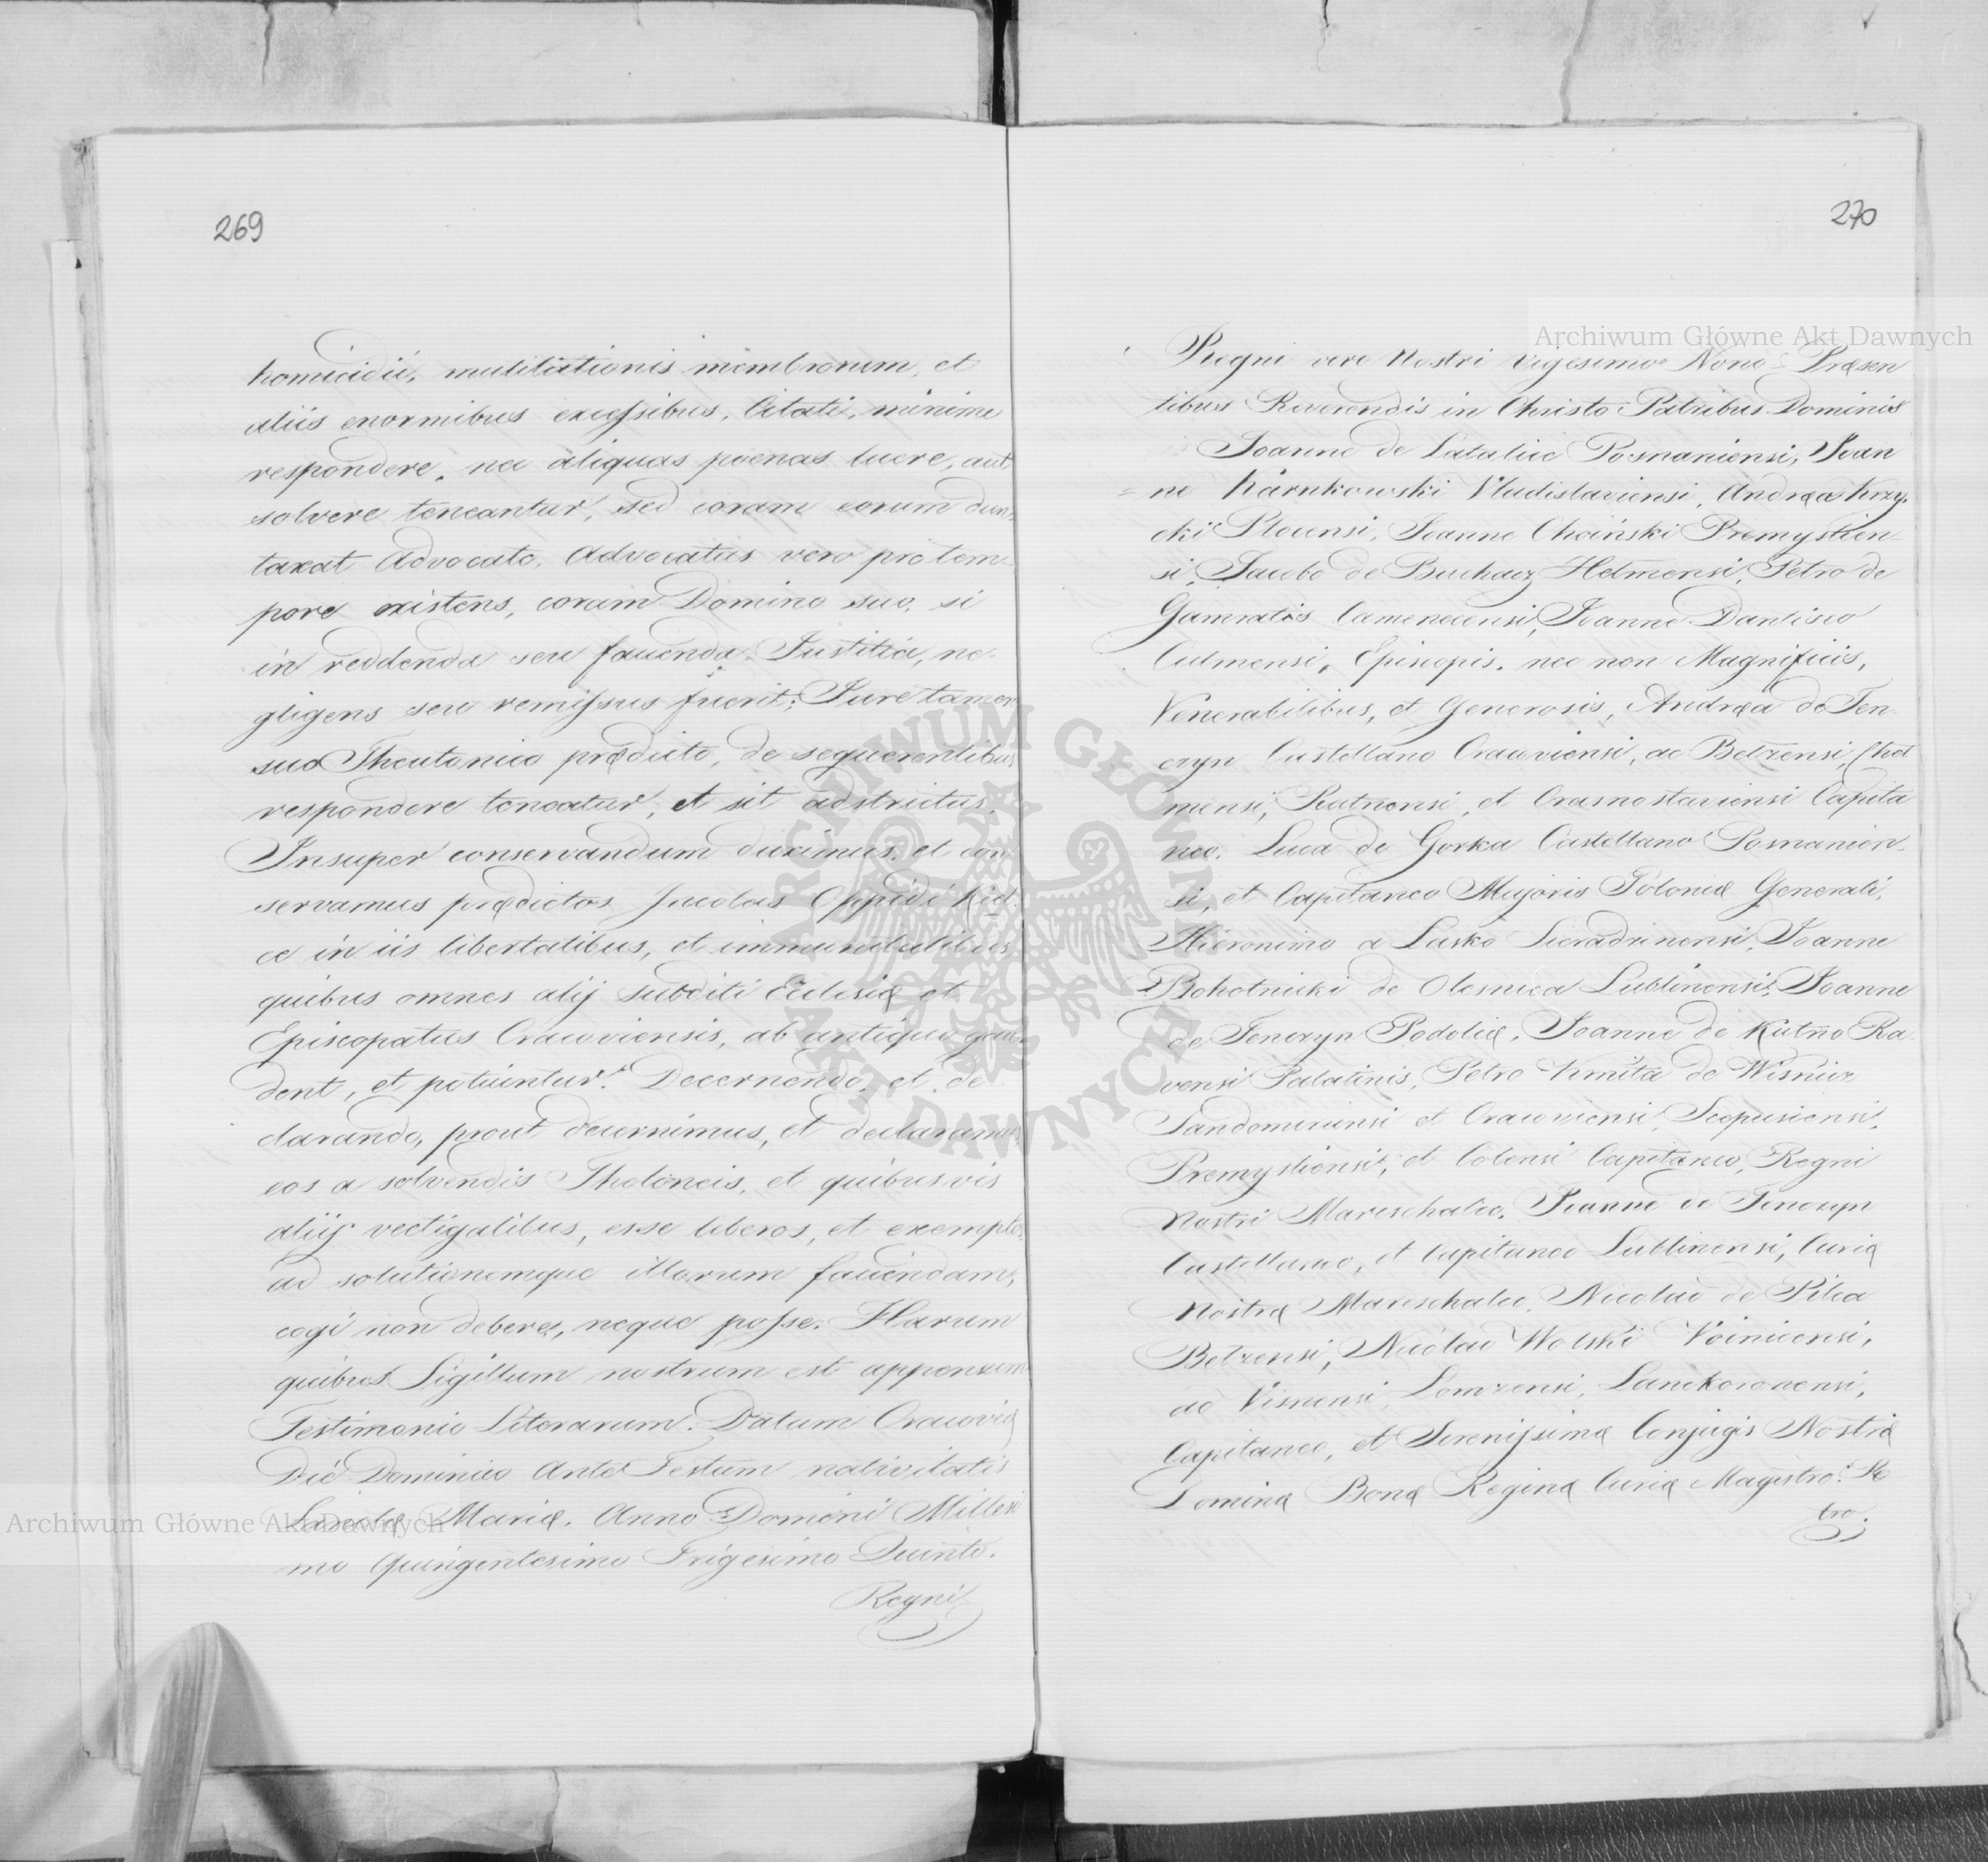 269
homicidii, mutilationis membrorum, et
aliis enormibus excessibus, Citati, minime
respondere, nec aliquas poenas luere, aut
solvere teneantur, sed coram eorum dun
taxat Advocato, Advocatus vero pro tem
pore existens, coram Domino suo, si
in reddenda seu fauenda Justitia, ne
gligens seu remissus fuerit; Jure tamen
suo Theutonico prædicto, de sequerentibus
respondere teneatur, et sit adstrictus.
Insuper conservandum duximus, et con
servamus prædictos Incolas Oppidi Kiel
ce in iis libertatibus, et immunitatibus
quibus omnes alij subditi Ecclesiæ et
Episcopatus Cracoviensis, ab antiquo gau
dent, et potiuntur. Decernendo, et de
clarando, prout decernimus, et declaramus,
eos a solvendis Theloneis, et quibusvis
aliij vectigalibus, esse liberos, et exemptos
ad solutionemque illorum fauendam,
cogi non debere, neque posse. Harum
quibus Sigillum nostrum est appensum
Testimonio Literarum. Datum Cracoviæ
Die Dominico Ante Festum nativitatis
Sanctæ Mariæ. Anno Domini Millesi
mo Quingentesimo Trigesimo Quinto.
Regni
270
Regni vero Nostri Vigesimo Nono - Præsen
tibus Reverendis in Christo Patribus Dominis
Joanne de Latalice Posnaniensi, Joan
ne Karnkowski Vladislaviensi, Andrea Krzy
cki Plocensi, Joanne Choiński Premyslien
si, Jacobo de Buchacz Helmensi, Petro de
Gamratis Camenecensi, Joanne Dantisco
Culmensi, Episcopis, nec non Magnificis,
Venerabilibus, et Generosis, Andræa de Ten
czyn Castellano Cracoviensi, ac Belzensi, Chel
mensi, Ratnensi, et Crasnostaviensi Capita
neo. Luca de Gorka Castellano Posnanien
si, et Capitaneo Majoris Poloniæ Generali,
Hieronimo a Lasko Sieradzinensi, Joanne
Bohotnicki de Olesnica Lublinensi, Joanne
de Tenczyn Podoliæ, Joanne de Kutno Ra
vensi Palatinis, Petro Kmita de Wisnicz
Sandomiriensi et Cracoviensi, Scepusiensi,
Premysliensi, et Colensi Capitaneo, Regni
Nostri Mareschalco, Joanne de Tenczyn
Castellano, et Capitaneo Lublinensi, Curiæ
Nostræ Mareschalco. Nicolao de Pilca
Belzensi, Nicolao Wolski Voinicensi,
ac Visnensi, Lomzensi, Lanckoronensi,
Capitaneo, et Serenissimæ Conjugis Nostræ
Dominæ Bonæ Reginæ Curiæ Magistro. Pe
tro.
Archiwum Główne Akt Dawnych
Archiwum Główne Akt Dawnych
ARCHIWUM GŁÓWNE AKT DAWNYCH